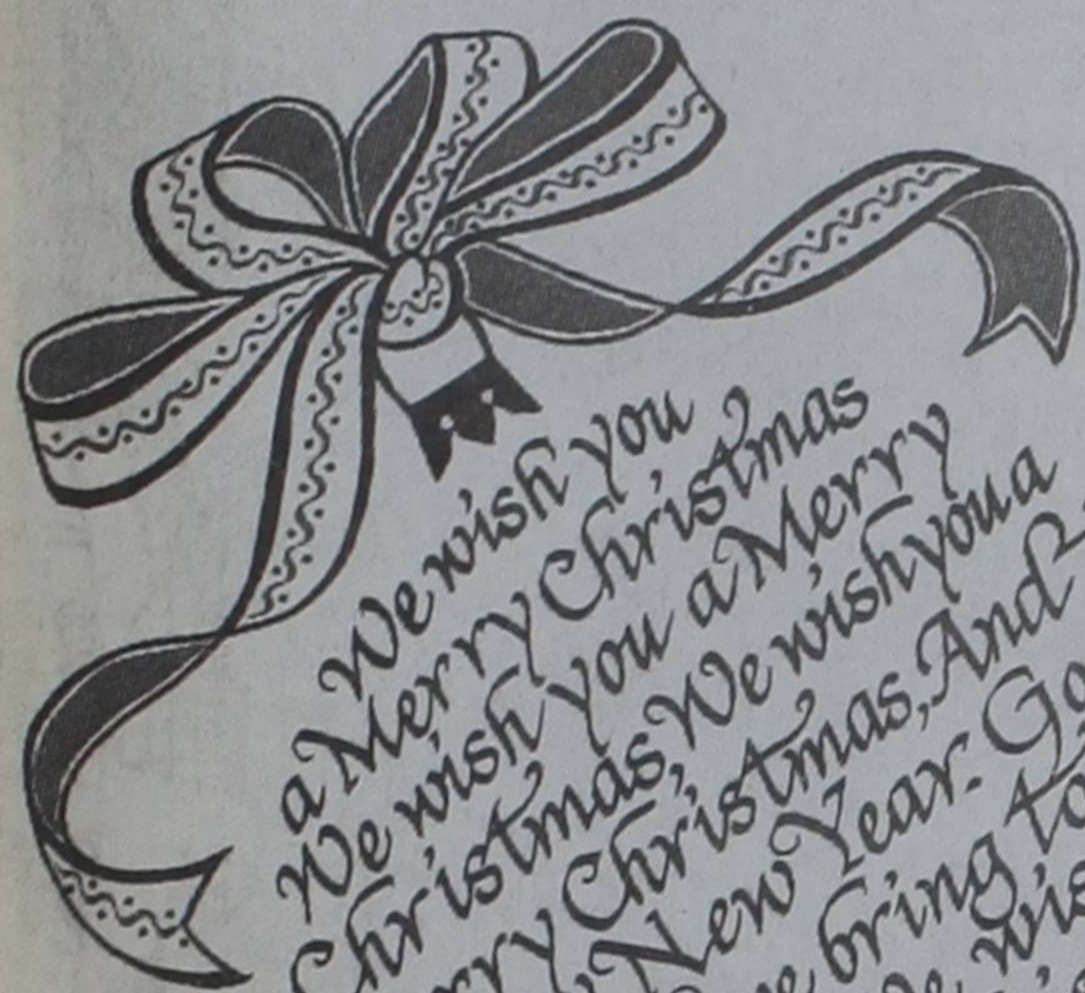 We wish you
a Merry Christmas
We wish you a Merry
Christmas, We wish you a
Christmas, And
New Year.
bring